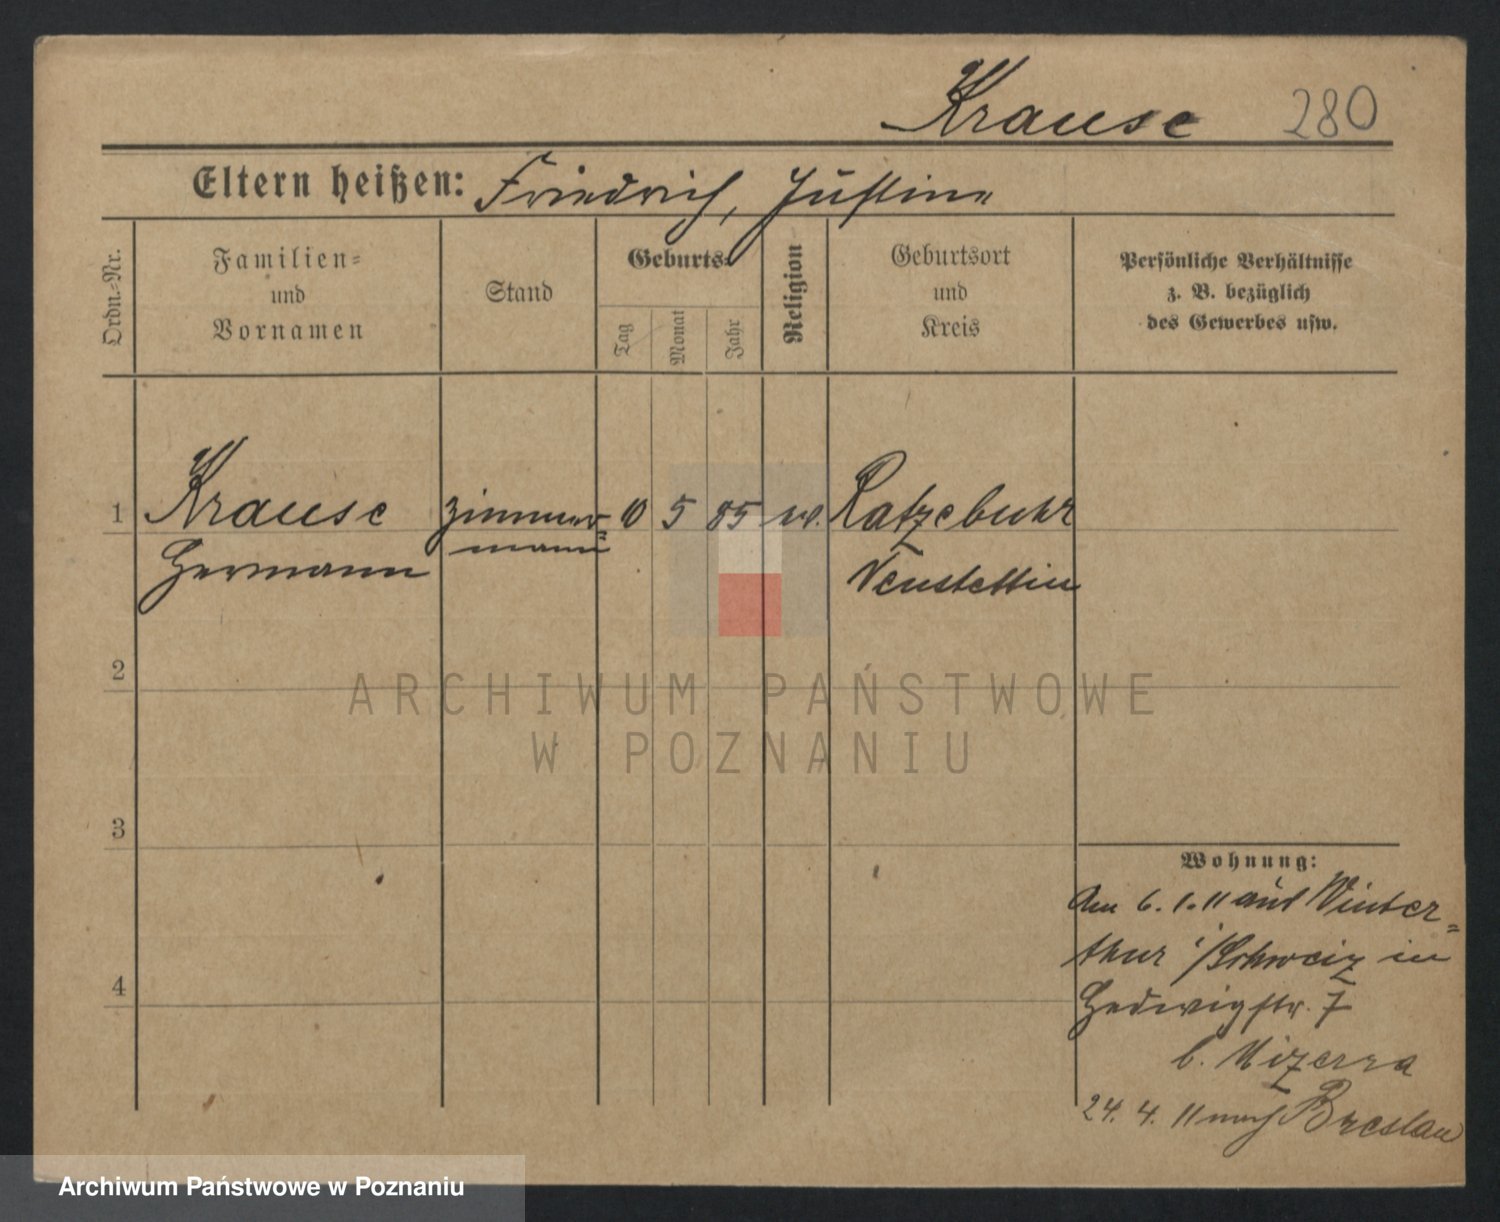 Krause 280
Eltern heißen: Friedrich, Justine
Ordn.-Nr.
Familien-
und
Vornamen
Stand
Geburts-
Tag
Monat
Jahr
Religion
Geburtsort
und
Kreis
Persönliche Verhältnisse
z. B. bezüglich
des Gewerbes usw.
1 Krause Zimmer= 10 5 85 ev. Ratzebuhr
Hermann mann Neustettin
2
3
4
Wohnung:
Am 6. 1. 11 aus Winter=
thur i/Schweiz in
Hedwigstr. 7
b. Mizerra
24. 4. 11 nach Breslau
ARCHIWUM PAŃSTWOWE
W POZNANIU
Archiwum Państwowe w Poznaniu